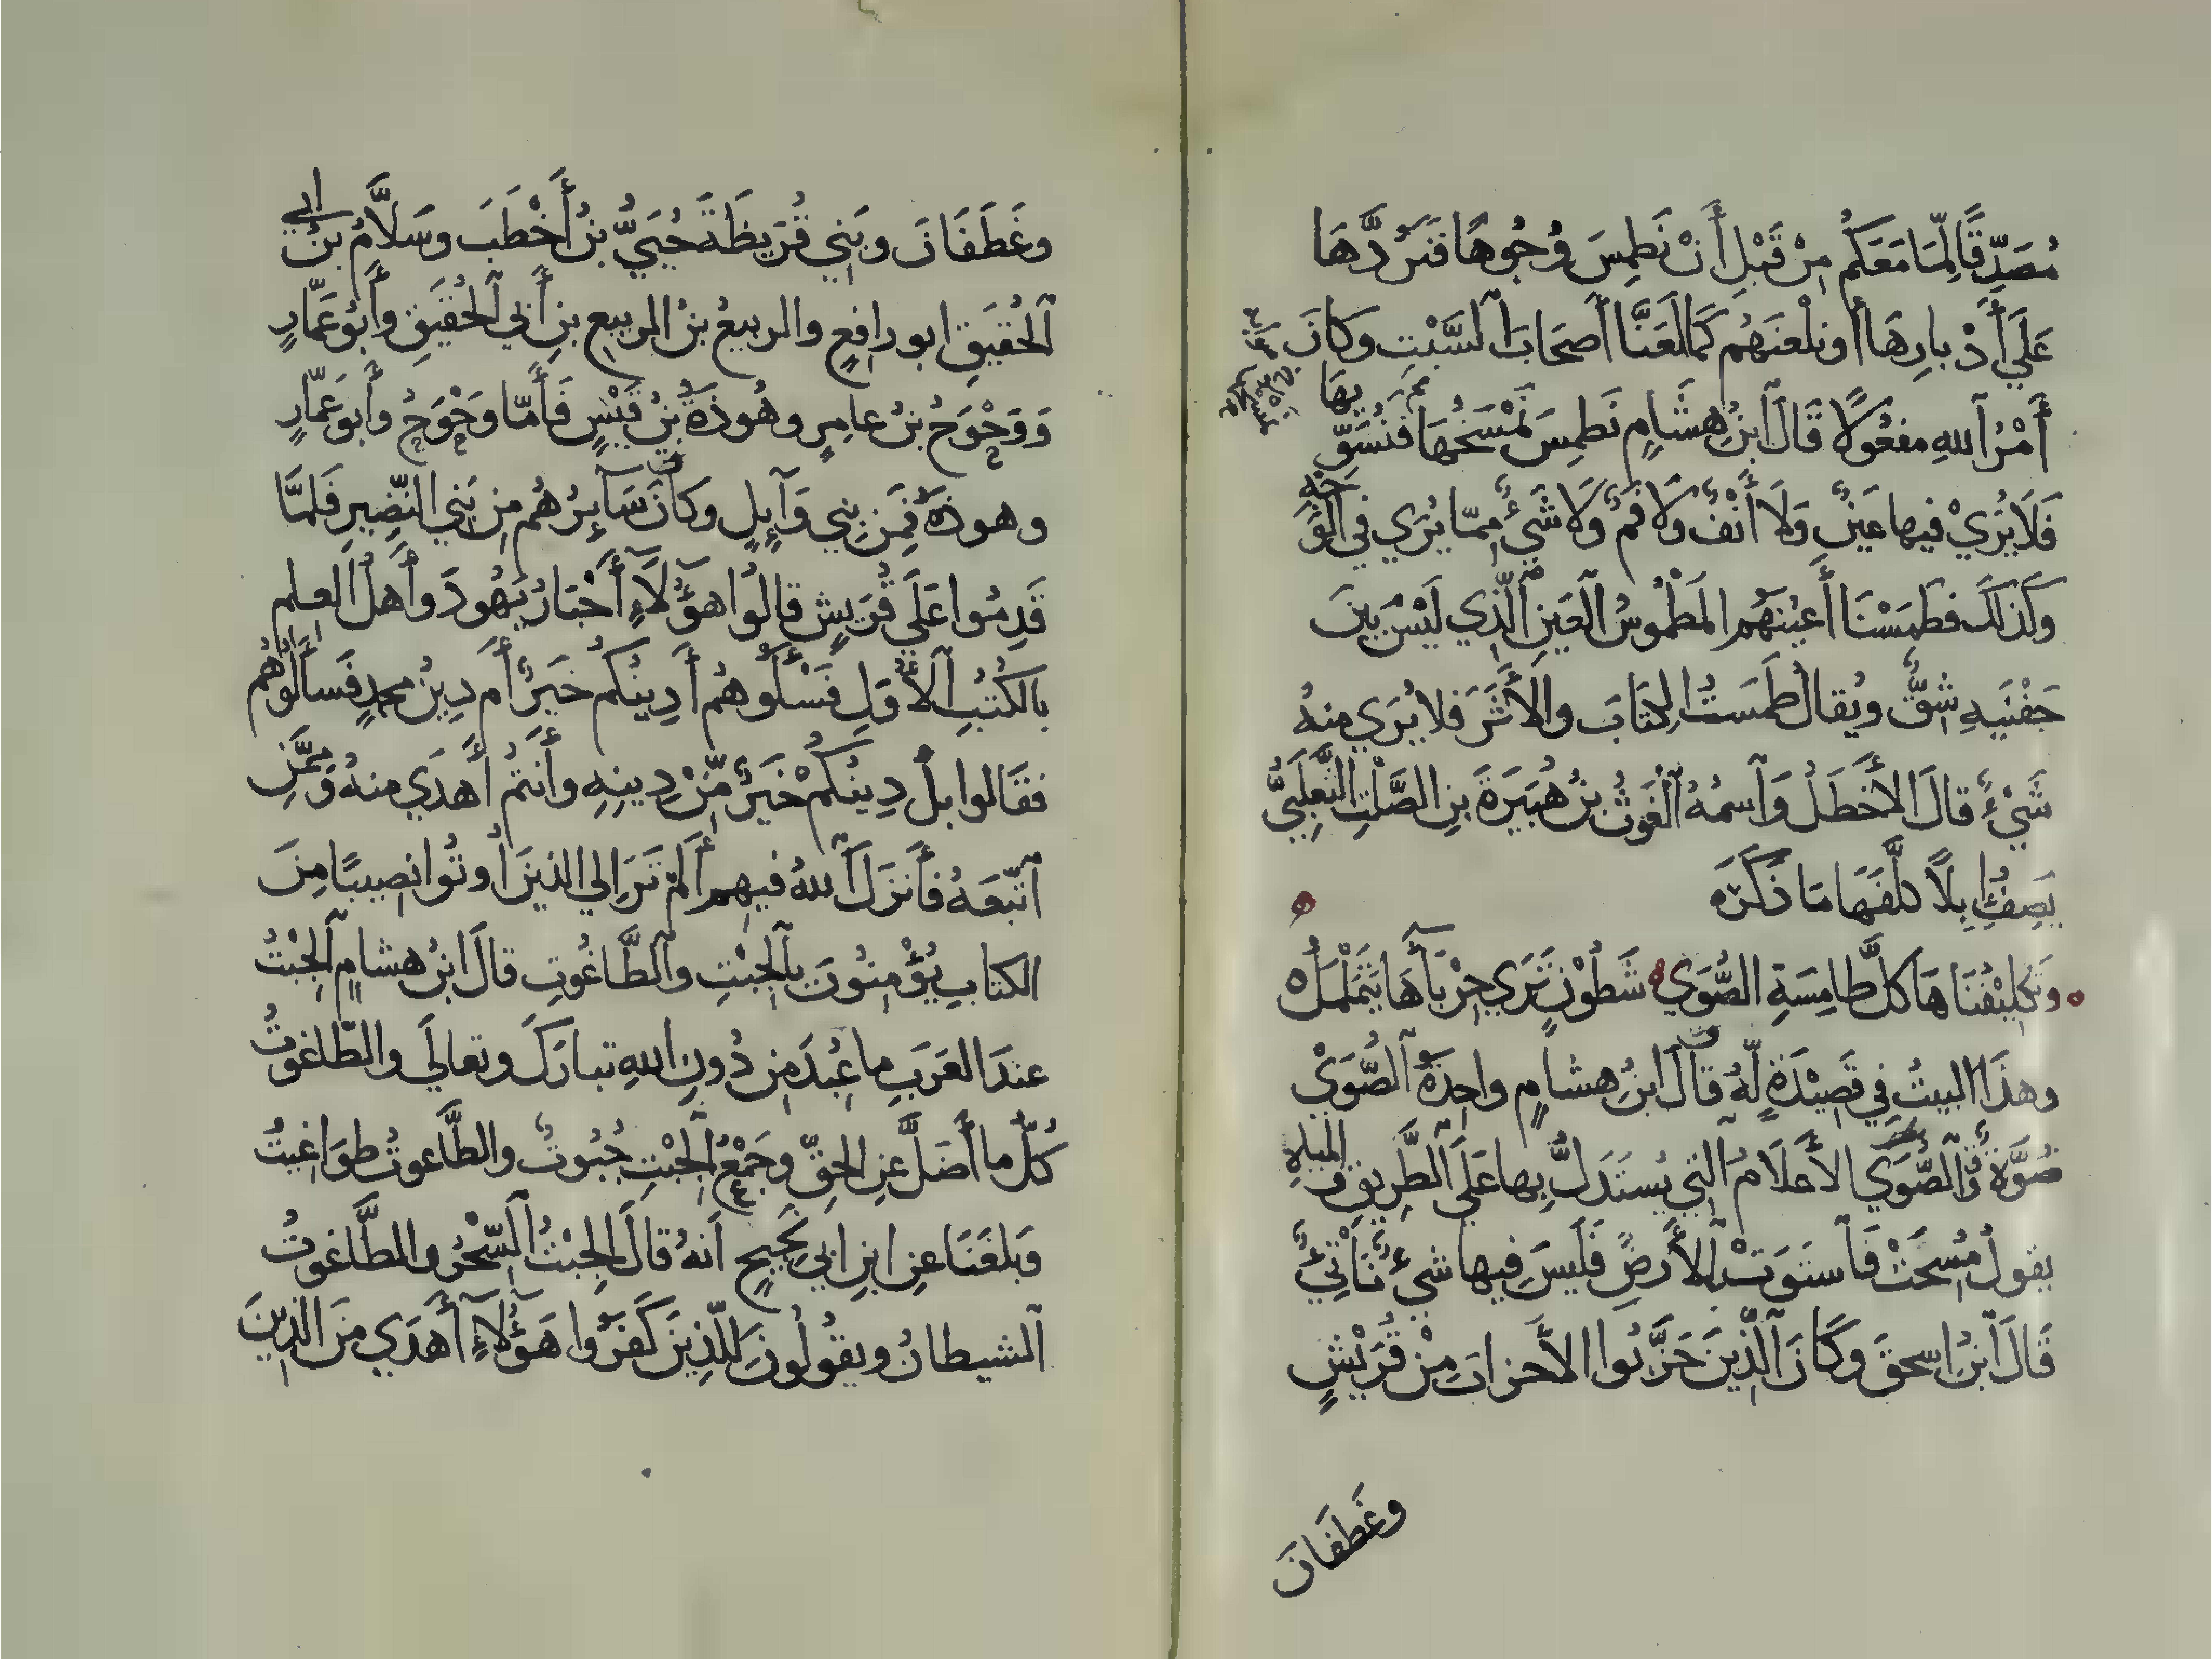 مُصَدِّقًا لِمَا مَعَكُمْ مِنْ قَبْلِ أَنْ نَطْمِسَ وُجُوهًا فَنَرُدَّهَا
عَلَي أَدْبارِهَا أو نلْعَنَهُم كَمَا لَعَنَّا أَصحَابَ ٱلسَّبْتِ وَكَانَ
أَمْرُ ٱللهِ مفعُولاً قَالَ ٱبنُ هشَامٍ نَطمِسَ نَمْسَحُهَا فَنُسَوِّ بهَا
فَلَا يُرَيْ فيها عَينٌ وَلَا أَنْفٌ وَلَا فَمٌ وَلَا شَيْءٌ مِمّا يُرَي في الوَجْهِ
وَكَذَلكَ فطَمَسْنَا أَعيُنَهُم المَطْمُوسُ العَينِ ٱلَّذِي لَيْسَ بينَ
جَفْنَيهِ شِقٌّ ويُقالُ طَمَستُ الكِتَابَ والأَثَرَ فلا يُرَي منهُ
شَيْءٌ قالَ الأَخطَلُ وَٱسمُهُ ٱلْغَوثُ بنُ هُبَيرَةَ بنِ الصَّلْتِ التَّغلَبِيُّ
يَصِفُ إِبِلاً كلَّفَهَا مَا ذَكَرَ
وتَكلِيْفُنَاهَا كلَّ طَامِسَةِ الصُّوَي شَطُوْنٍ تَرَي حِرْبَآءَهَا يَتَمَلْمَلُ
وهذَا البيتُ فِي قَصِيْدَةٍ لَهُ قالَ ابنُ هشامٍ واحِدَةُ ٱلصُّوَيْ
صُوَّةٌ وٱلصُّوَي الأَعلَامُ التِي يُستَدَلُّ بِها عَلَي ٱلطَّرِيقِ و المياهِ
يقولُ مُسِحَتْ فَٱستَوَتِ الأَرضُ فَلَيسَ فِيها شيءٌ نَاتِيٌ
قَالَ ٱبنُ اسحقَ وَكَانَ ٱلَّذِينَ حَزَّبُوا الأَحزابَ مِنْ قُرَيْشٍ
وغَطَفَانَ
وغَطَفَانَ وبَنِي قُرَيظَةَ حُيَيُّ بنُ أَخْطَبَ وسَلَّامُ بنُ ابي
ٱلحُقَيقِ ابو رافعٍ والربيعُ بنُ الربيعِ بنِ أَبي ٱلحُقَيقِ وأَبُو عَمّارٍ
وَوَحْوَحُ بنُ عامِرٍ وهُوذَةُ بنُ قَيْسٍ فَأَمّا وَحْوَحُ وأَبو عَمّارٍ
وهوذةُ فمِن بنِي وَآئِلٍ وكَانَ سَآئِرُهُم مِن بَنِي النَّضِيرِ فَلمَّا
قَدِمُوا عَلَي قُرَيشٍ قالُوا هَؤُلآءِ أَحْبَارُ يَهُودَ وأَهلُ العِلمِ
بالكُتُبِ ٱلأُوَلِ فَسْأَلُوهُم أَدِينُكُم خَيرٌ أَم دِينُ محمدٍ فَسأَلُوهُم
فقَالوا بلْ دِينُكُمْ خَيرٌ مِّنْ دِينِهِ وأَنتُم أَهدَي منهُ ومِمَّنِ
ٱتَّبَعَهُ فأَنزَلَ ٱللهُ فيهِم أَلَمْ تَرَ إلي الذينَ أُوتُوا نصِيبًا مِنَ
الكتابِ يُؤْمِنُونَ بٱلجِبْتِ وٱلطَّاغُوتِ قالَ ابنُ هشامٍ ٱلجِبْتُ
عندَ العَرَبِ ما عُبِدَ مِن دُونِ اللهِ تبارَكَ وتعالَي والطّاغوتُ
كُلُّ ما أَضَلَّ عنِ الحَقِّ وجَمْعُ ٱلجِبْتِ جُبُوتٌ والطَّاغوتُ طوَاغيتُ
وَبلَغَنَا عنِ ابنِ ابي نَجِيحٍ أَنهُ قالَ الجِبْتُ ٱلسِّحْرُ والطَّاغوتُ
الشيطانُ ويقُولُونَ للَّذِينَ كَفَرُوا هَؤُلَآءِ أَهدَي مِنَ الَّذِينَ